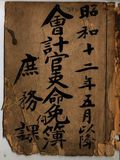 昭和十二年五月以降
會計官吏命免簿
庶務課